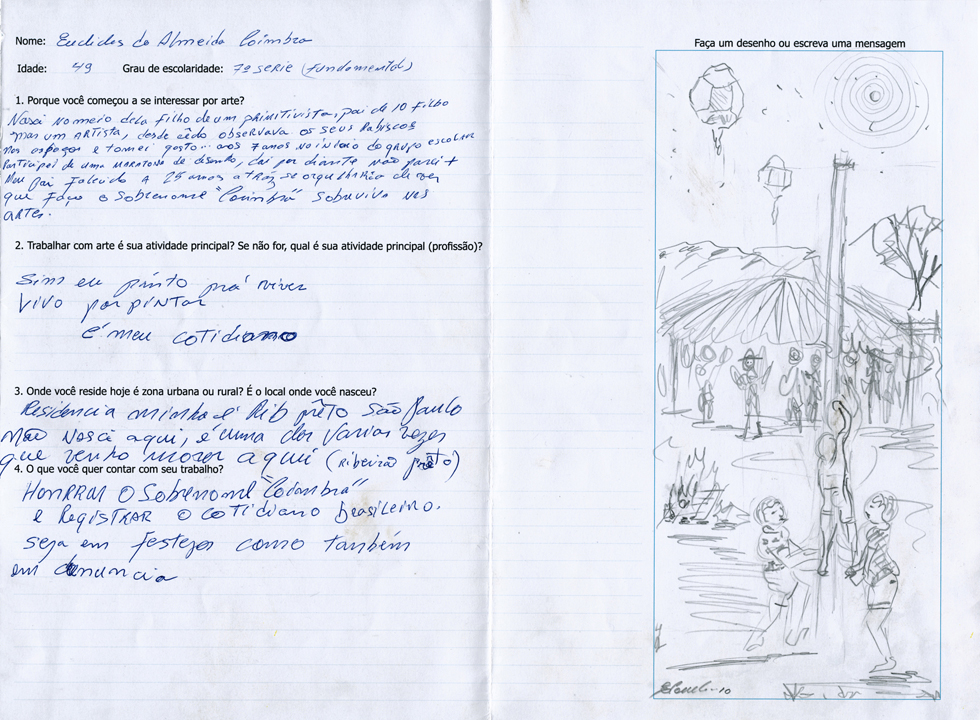 Nome: Euclides de Almeida Coimbra
Idade: 49 Grau de escolaridade: 7ª serie (fundamental)
1. Porque você começou a se interessar por arte?
Nasci no meio dela filho de um primitivista, pai de 10 filho
mas um ARTISTA, desde cêdo observava os seus Rabiscos
nos espaços e tomei gosto... aos 7 anos no inicio do grupo escolar
Participei de uma MARATONA de desenho, daí por diante não parei +
Meu pai falecido A 25 anos atráz se orgulharia de ver
que faço o sobrenome "Coimbra" sobreviva nas
ARTES.
2. Trabalhar com arte é sua atividade principal? Se não for, qual é sua atividade principal (profissão)?
Sim eu pinto prá viver
Vivo por pintar
É meu cotidiano
3. Onde você reside hoje é zona urbana ou rural? É o local onde você nasceu?
Residencia minha é Rib prêto São Paulo
Não Nasci aqui, é uma das varias vezes
que venho morar aqui (Ribeirão prêto)
4. O que você quer contar com seu trabalho?
HONRRAR O Sobrenome "Coimbra"
e REGISTRAR o cotidiano brasileiro.
seja em festejos como também
em denuncia
Faça um desenho ou escreva uma mensagem